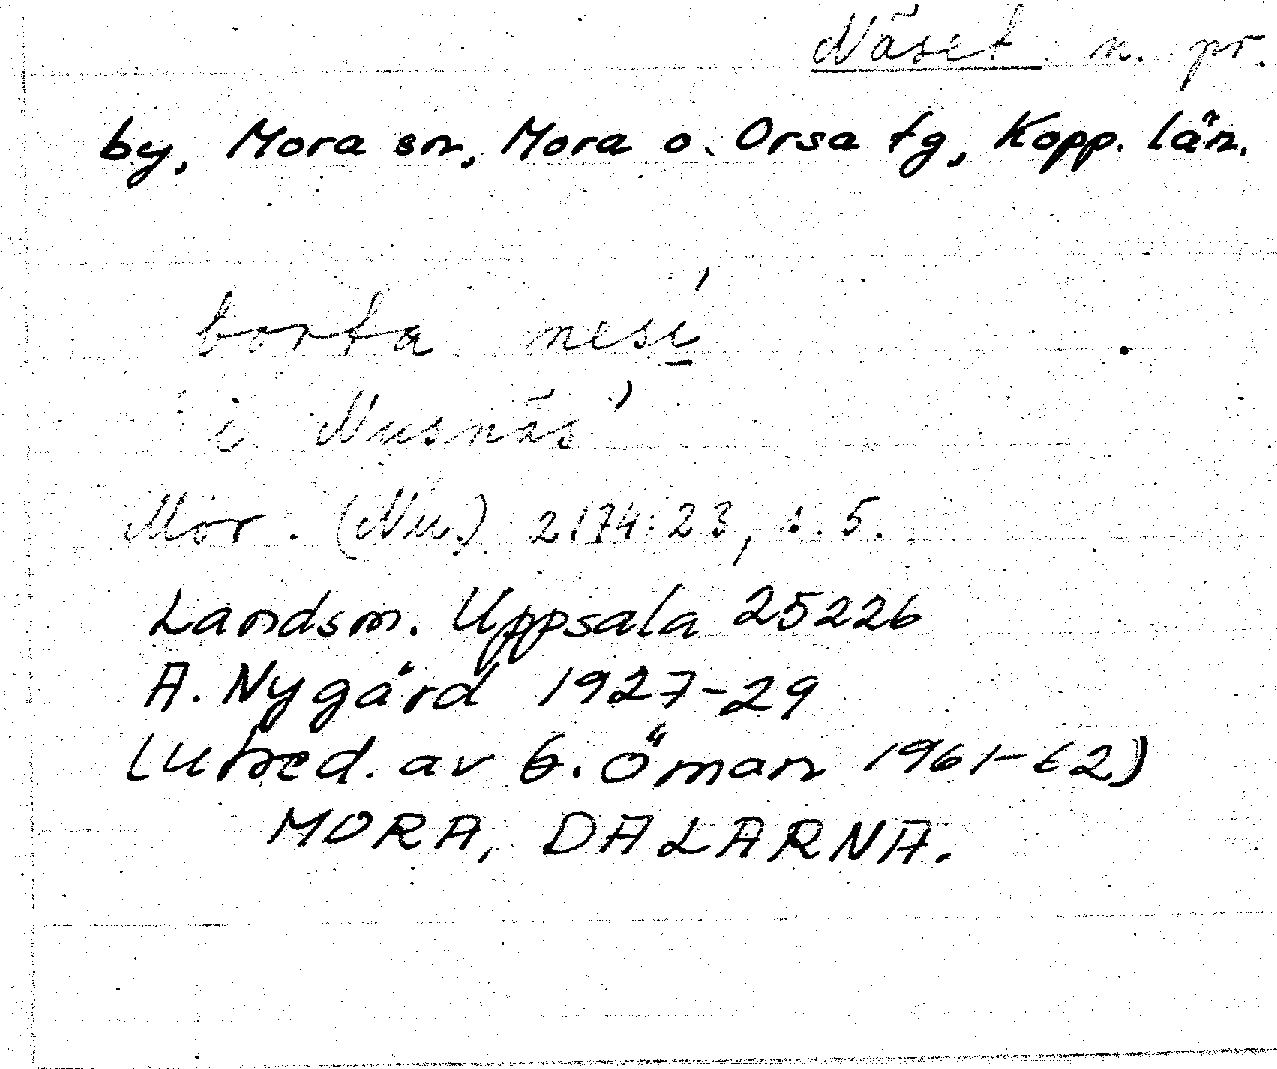 Näset n. pr.
by, Mora sn, Mora o. Orsa tg, Kopp. län.
borta nesi̲'
i Nusnäs'
Mor. (Nu.) 2174:23, s. 5.
Landsm. Uppsala 25226
A. Nygård 1927-29
(utred. av G. Öman 1961-62)
MORA, DALARNA.